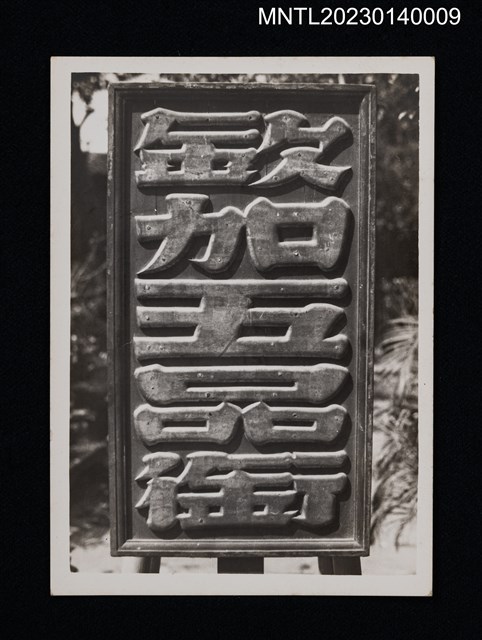 MNTL20230140009
欽
加
五
品
銜